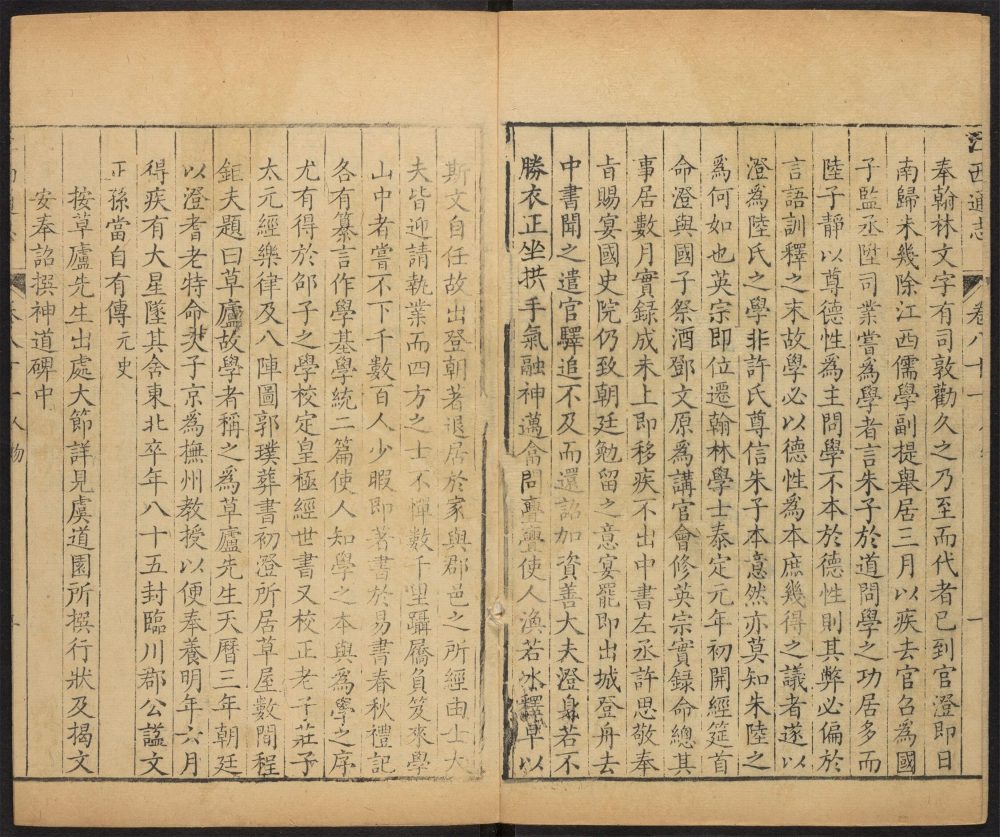 江西通志 卷八十 一
奉翰林文字有司敦勸久之乃至而代者已到官澄即日
南歸未幾除江西儒學副提舉居三月以疾去官召為國
子監丞陞司業嘗為學者言朱子於道問學之功居多而
陸子靜以尊德性為主問學不本於德性則其弊必偏於
言語訓釋之末故學必以德性為本庶幾得之議者遂以
澄為陸氏之學非許氏尊信朱子本意然亦莫知朱陸之
為何如也英宗即位遷翰林學士泰定元年初開經筵首
命澄與國子祭酒鄧文原為講官會修英宗實録命總其
事居數月實録成未上即移疾不出中書左丞許思敬奉
旨賜宴國史院仍致朝廷勉留之意宴罷即出城登舟去
中書聞之遣官驛追不及而還詔加資善大夫澄身若不
勝衣正坐拱手氣融神邁答問亹亹使人渙若冰釋早以
斯文自任故出登朝著退居於家與郡邑之所經由士大
夫皆迎請執業而四方之士不憚數千里躡屩負笈來學
山中者嘗不下千數百人少暇即著書於易書春秋禮記
各有纂言作學基學統二篇使人知學之本與為學之序
尤有得於邵子之學校定皇極經世書又校正老子莊子
太元經樂律及八陣圖郭璞葬書初澄所居草屋數間程
鉅夫題曰草廬故學者稱之為草廬先生天曆三年朝廷
以澄耆老特命次子京為撫州教授以便奉養明年六月
得疾有大星墜其舍東北卒年八十五封臨川郡公謚文
正孫當自有傳 元史
按草廬先生出處大節詳見虞道園所撰行狀及揭文
安奉詔撰神道碑中
人物